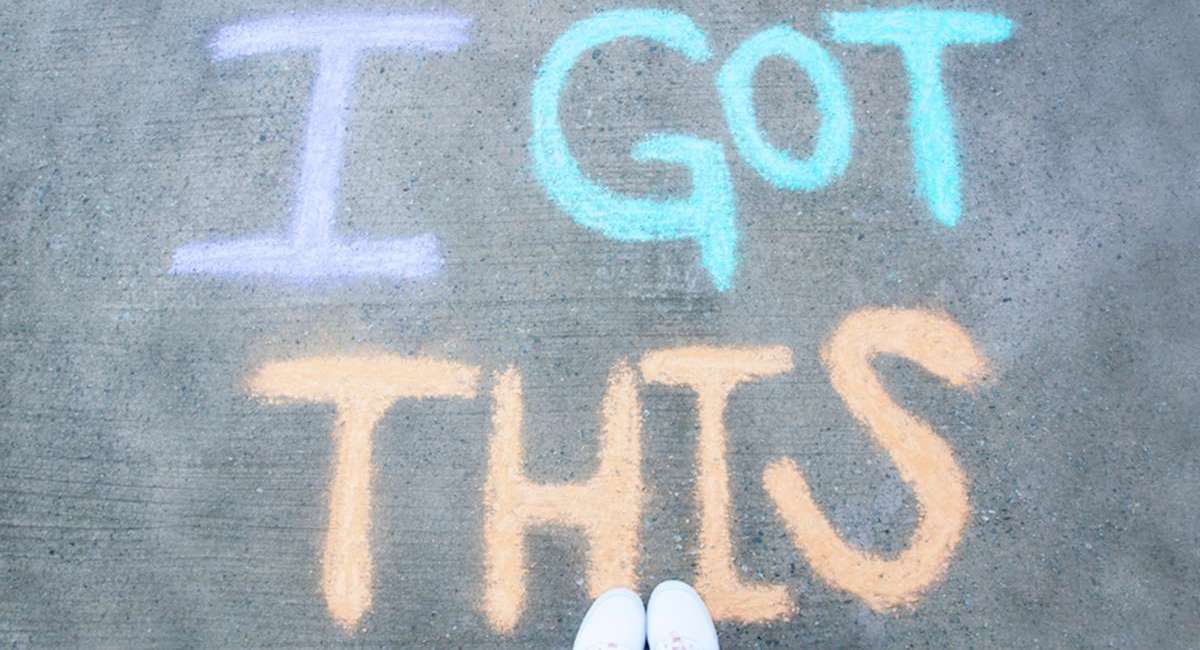 I GOT
THIS